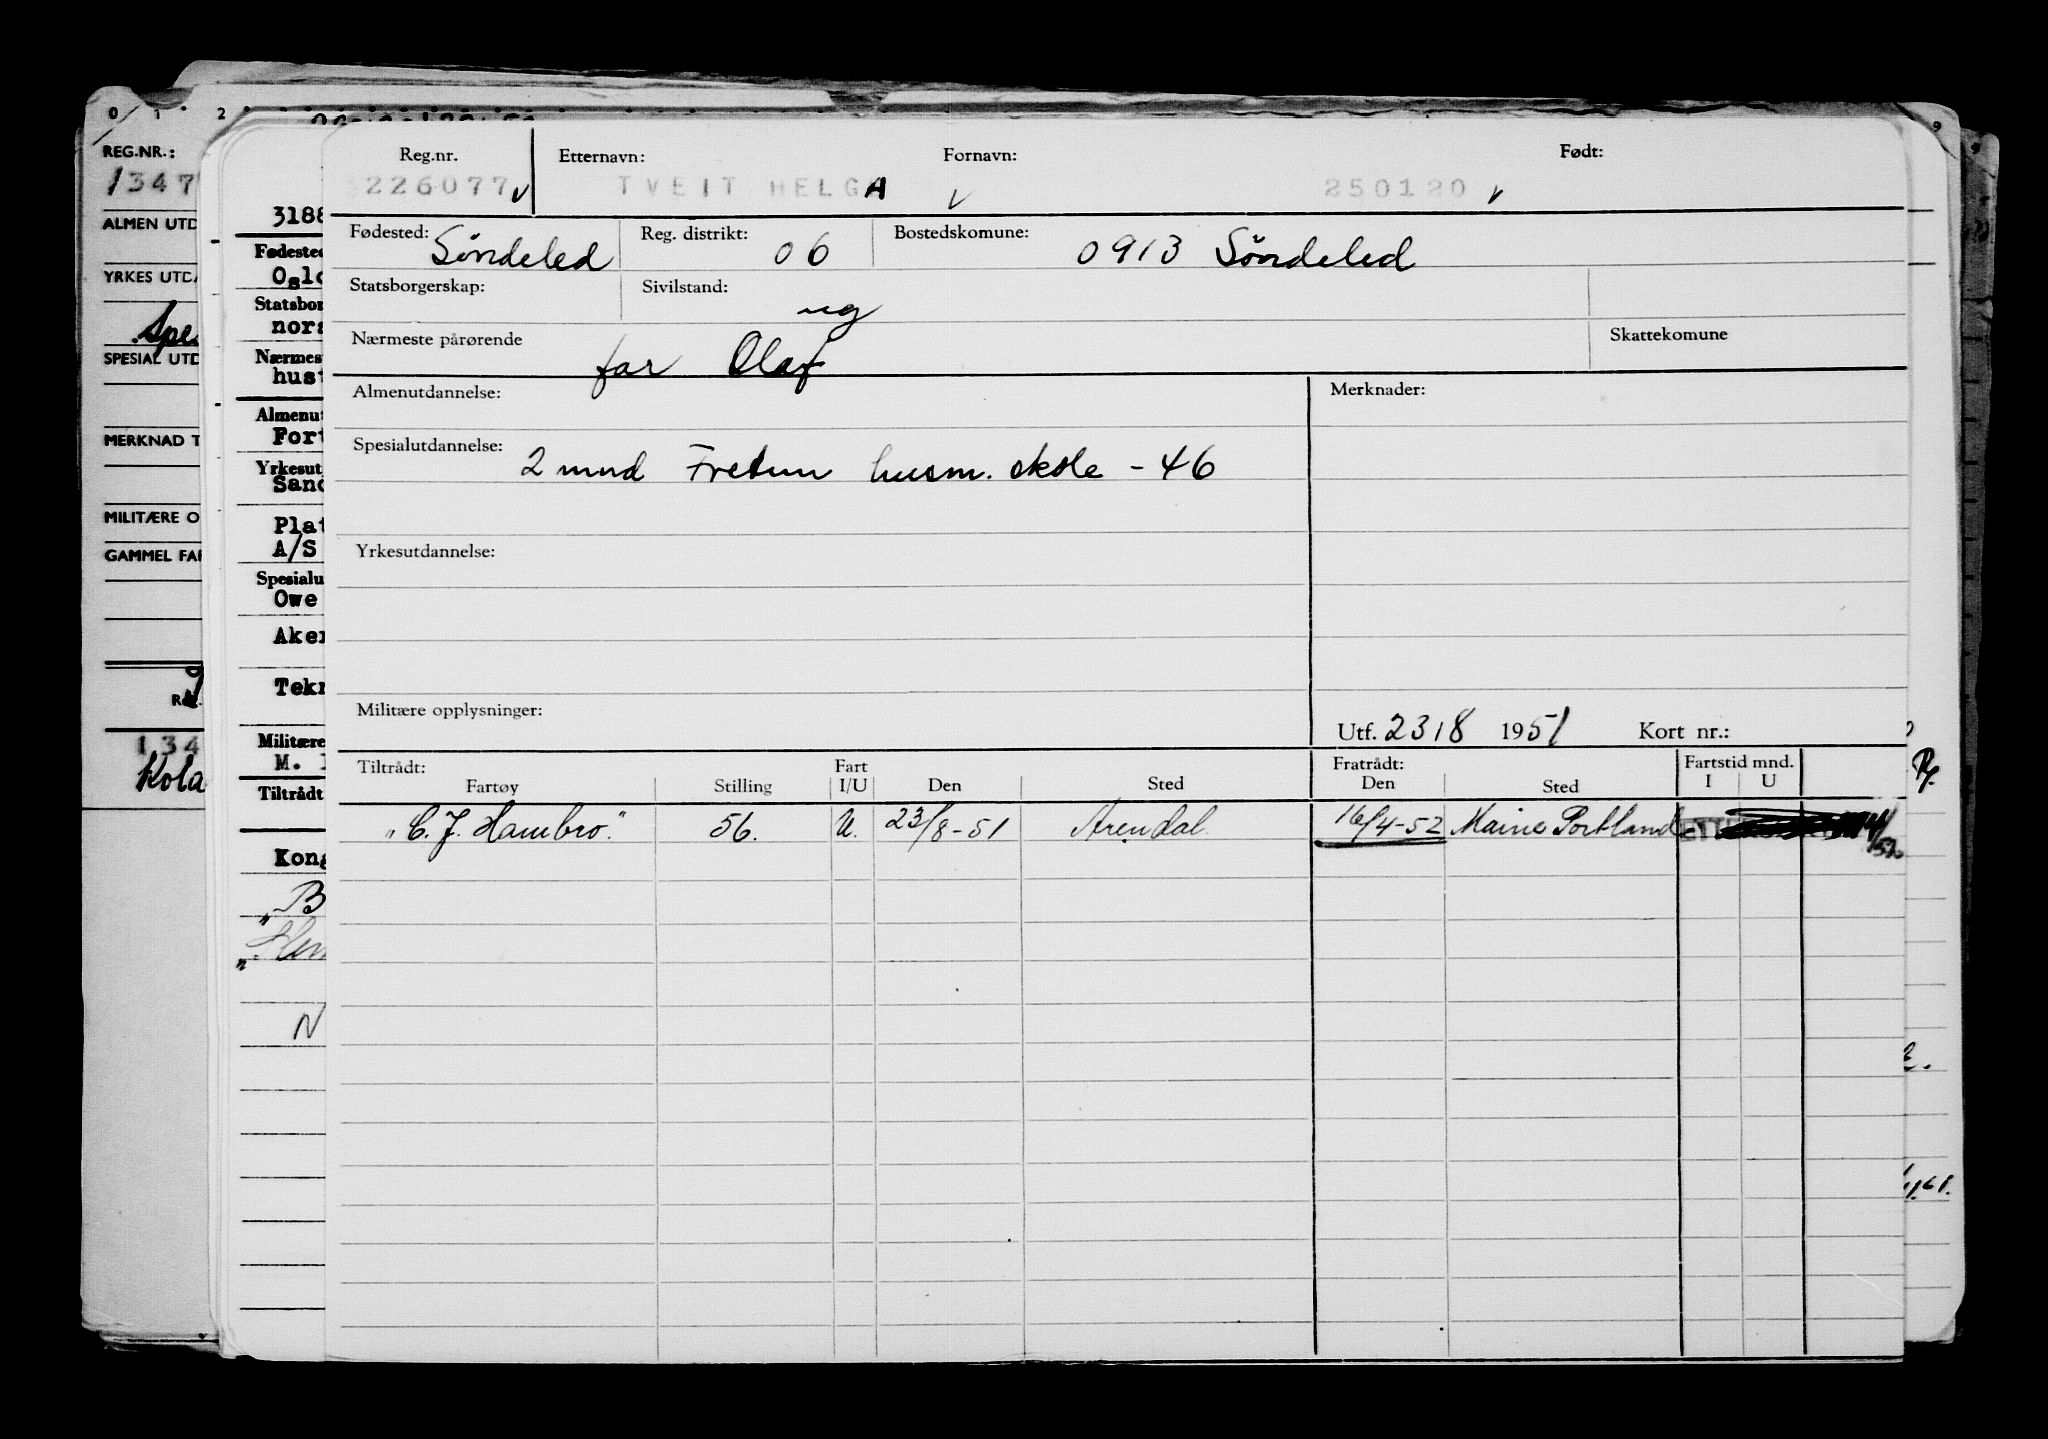 0 1 2 9
REG.NR.:
1347
ALMEN UTD
YRKES UTDA
Spe
SPESIAL UTD
MERKNAD T
MILITÆRE O
GAMMEL FAR
134
Kola
3188
Fødested
Oslo
Statsbor
nors
Nærmes
hust
Almenut
Fort
Yrkesut
Sand
Plat
A/S
Spesialu
Owe
Aker
Tekn
Militære
M.
Tiltrådt
Kong
„B
N
Reg.nr. Etternavn: Fornavn: Født:
226077 TVEIT HELGA 250120
Fødested: Söndeled Reg. distrikt: 06 Bostedskomune: 0913 Söndeled
Statsborgerskap: Sivilstand: ug
Nærmeste pårørende far Olaf Skattekomune
Almenutdannelse: Merknader:
Spesialutdannelse: 2 mnd Fretun husm. skole - 46
Yrkesutdannelse:
Militære opplysninger: Utf. 23/8 1951 Kort nr.:
Tiltrådt: Fart Fratrådt: Fartstid mnd.
Fartøy Stilling I/U Den Sted Den Sted I U
„C. J. Hambro." 56. U. 23/8-51 Arendal. 16/4-52 Maine Portland